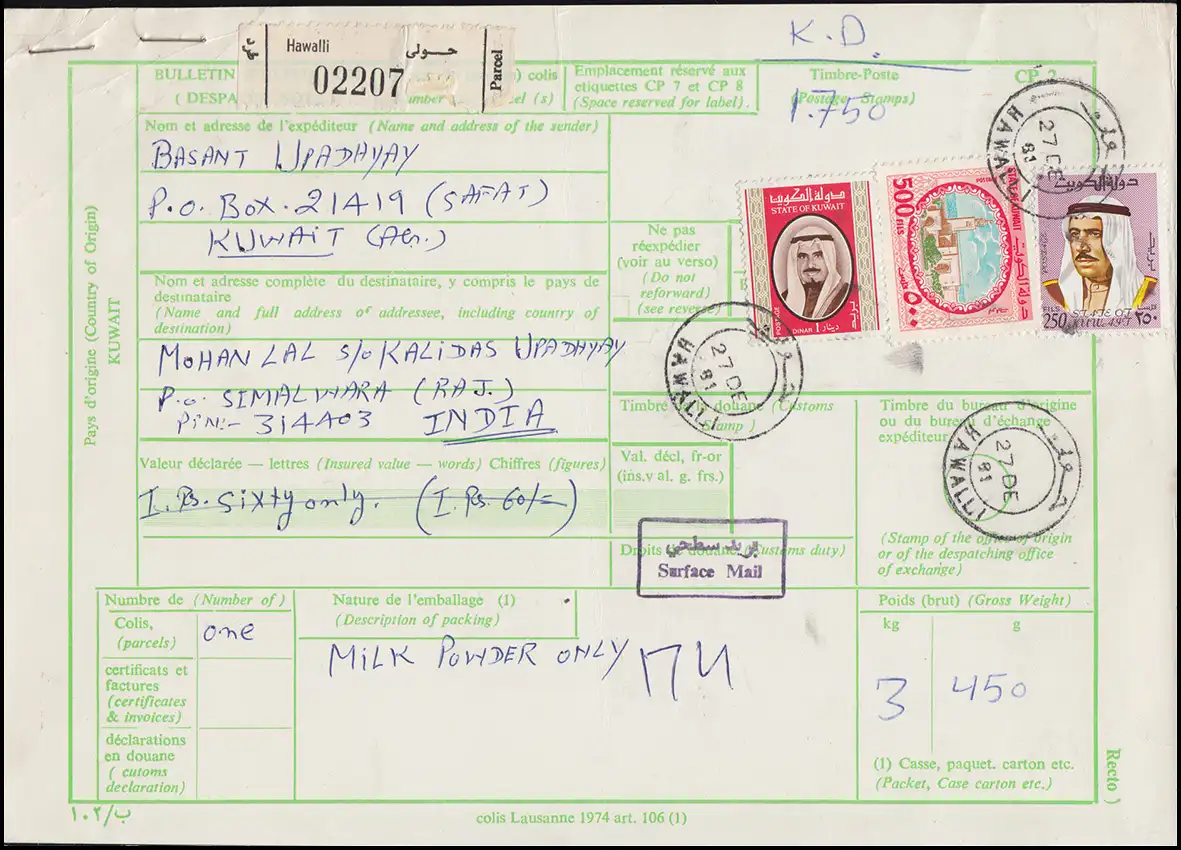 K.D.
Hawalli حولي
02207
Parcel
طرد
BULLETIN
) colis
(DESPA
el (s)
Emplacement réservé aux
etiquettes CP 7 et CP 8
(Space reserved for label).
Timbre-Poste
(Postage Stamps)
CP 2
1.750
Nom et adresse de l'expéditeur (Name and address of the sender)
BASANT UPADHYAY
P.O. BOX. 21419 (SAFAT)
KUWAIT (AG.)
Pays d'origine (Country of Origin)
KUWAIT
Ne pas
réexpédier
(voir au verso)
(Do not
reforward)
(see reverse)
دولة الكويت
STATE OF KUWAIT
POSTAGE
DINAR 1 دينار
بريد
500 FILS
STATE OF KUWAIT
دولة الكويت
٥٠٠
دولة الكويت
250 FILS
STATE OF KUWAIT
٢٥٠
HAWALLI
27 DE
81
حولي
Nom et adresse complète du destinataire, y compris le pays de
destinataire
(Name and full address of addressee, including country of
destination)
MOHAN LAL S/O KALIDAS UPADHYAY
P.O. SIMALWARA (RAJ.)
PIN:- 314403 INDIA
HAWALLI
27 DE
81
حولي
Timbre de douane (Customs
Stamp)
Timbre du bureau d'origine
ou du bureau d'échange
expéditeur
HAWALLI
27 DE
81
حولي
(Stamp of the office of origin
or of the despatching office
of exchange)
Valeur déclarée — lettres (Insured value — words) Chiffres (figures)
I. Rs. Sixty only. (I. Rs. 60/=)
Val. décl, fr-or
(ins.v al. g. frs.)
Droits de douane (Customs duty)
بريد سطحي
Surface Mail
Numbre de (Number of)
Colis,
(parcels)
one
certificats et
factures
(certificates
& invoices)
déclarations
en douane
( cutoms
declaration)
Nature de l'emballage (1)
(Description of packing)
MILK POWDER ONLY
Poids (brut) (Gross Weight)
kg g
3 450
(1) Casse, paquet. carton etc.
(Packet, Case carton etc.)
Recto )
١٠٢/ب
colis Lausanne 1974 art. 106 (1)